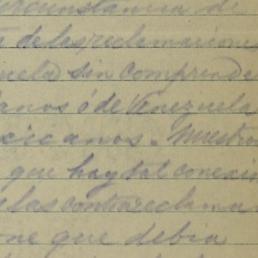 ircunstancia de
de las reclamaciones
uela sin comprende
anos ó de Venezuela
xicanos. Nuestro
que hay tal conexi
las contrareclama
one que debia